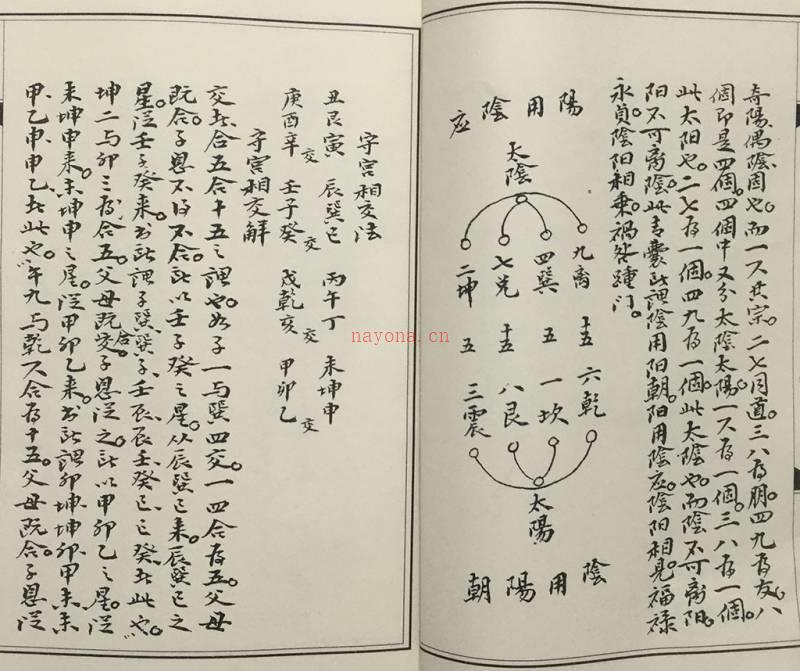 奇陽偶陰固也。而一六共宗。二七同道。三八為朋。四九為友。八
個即是四個。四個中又分太陰太陽。一六為一個。三八為一個。
此太阳也。二七為一個。四九為一個。此太陰也。而陰不可离阳。
阳不可离陰。此青囊所謂陰用阳朝。阳用陰应。陰阳相見。福祿
永貞。陰阳相乘。禍咎踵门。
应陰用陽
太陰
九离 十五 六乾
四巽 五 一坎
七兑 十五 八艮
二坤 五 三震
太陽
朝陽用陰
守宮相交法
丑艮寅 辰巽巳 丙午丁 未坤申
交 交 交 交
庚酉辛 壬子癸 戌乾亥 甲卯乙
守宮相交解
交者。合五合十五之謂也。如子一与巽四交。一四合為五。父母
既合。子息不得不合。所以壬子癸之星。从辰巽巳来。辰巽巳之
星。從壬子癸来。書所謂子巽巽子。壬辰辰壬。癸巳巳癸者此也。
坤二与卯三為合五。父母既交合。子息從之。所以甲卯乙之星。從
未坤申来。未坤申之星。從甲卯乙来。書所謂卯坤坤卯。甲未未
甲。乙申申乙者此也。午九与乾六合為十五。父母既合。子息從
nayona.cn